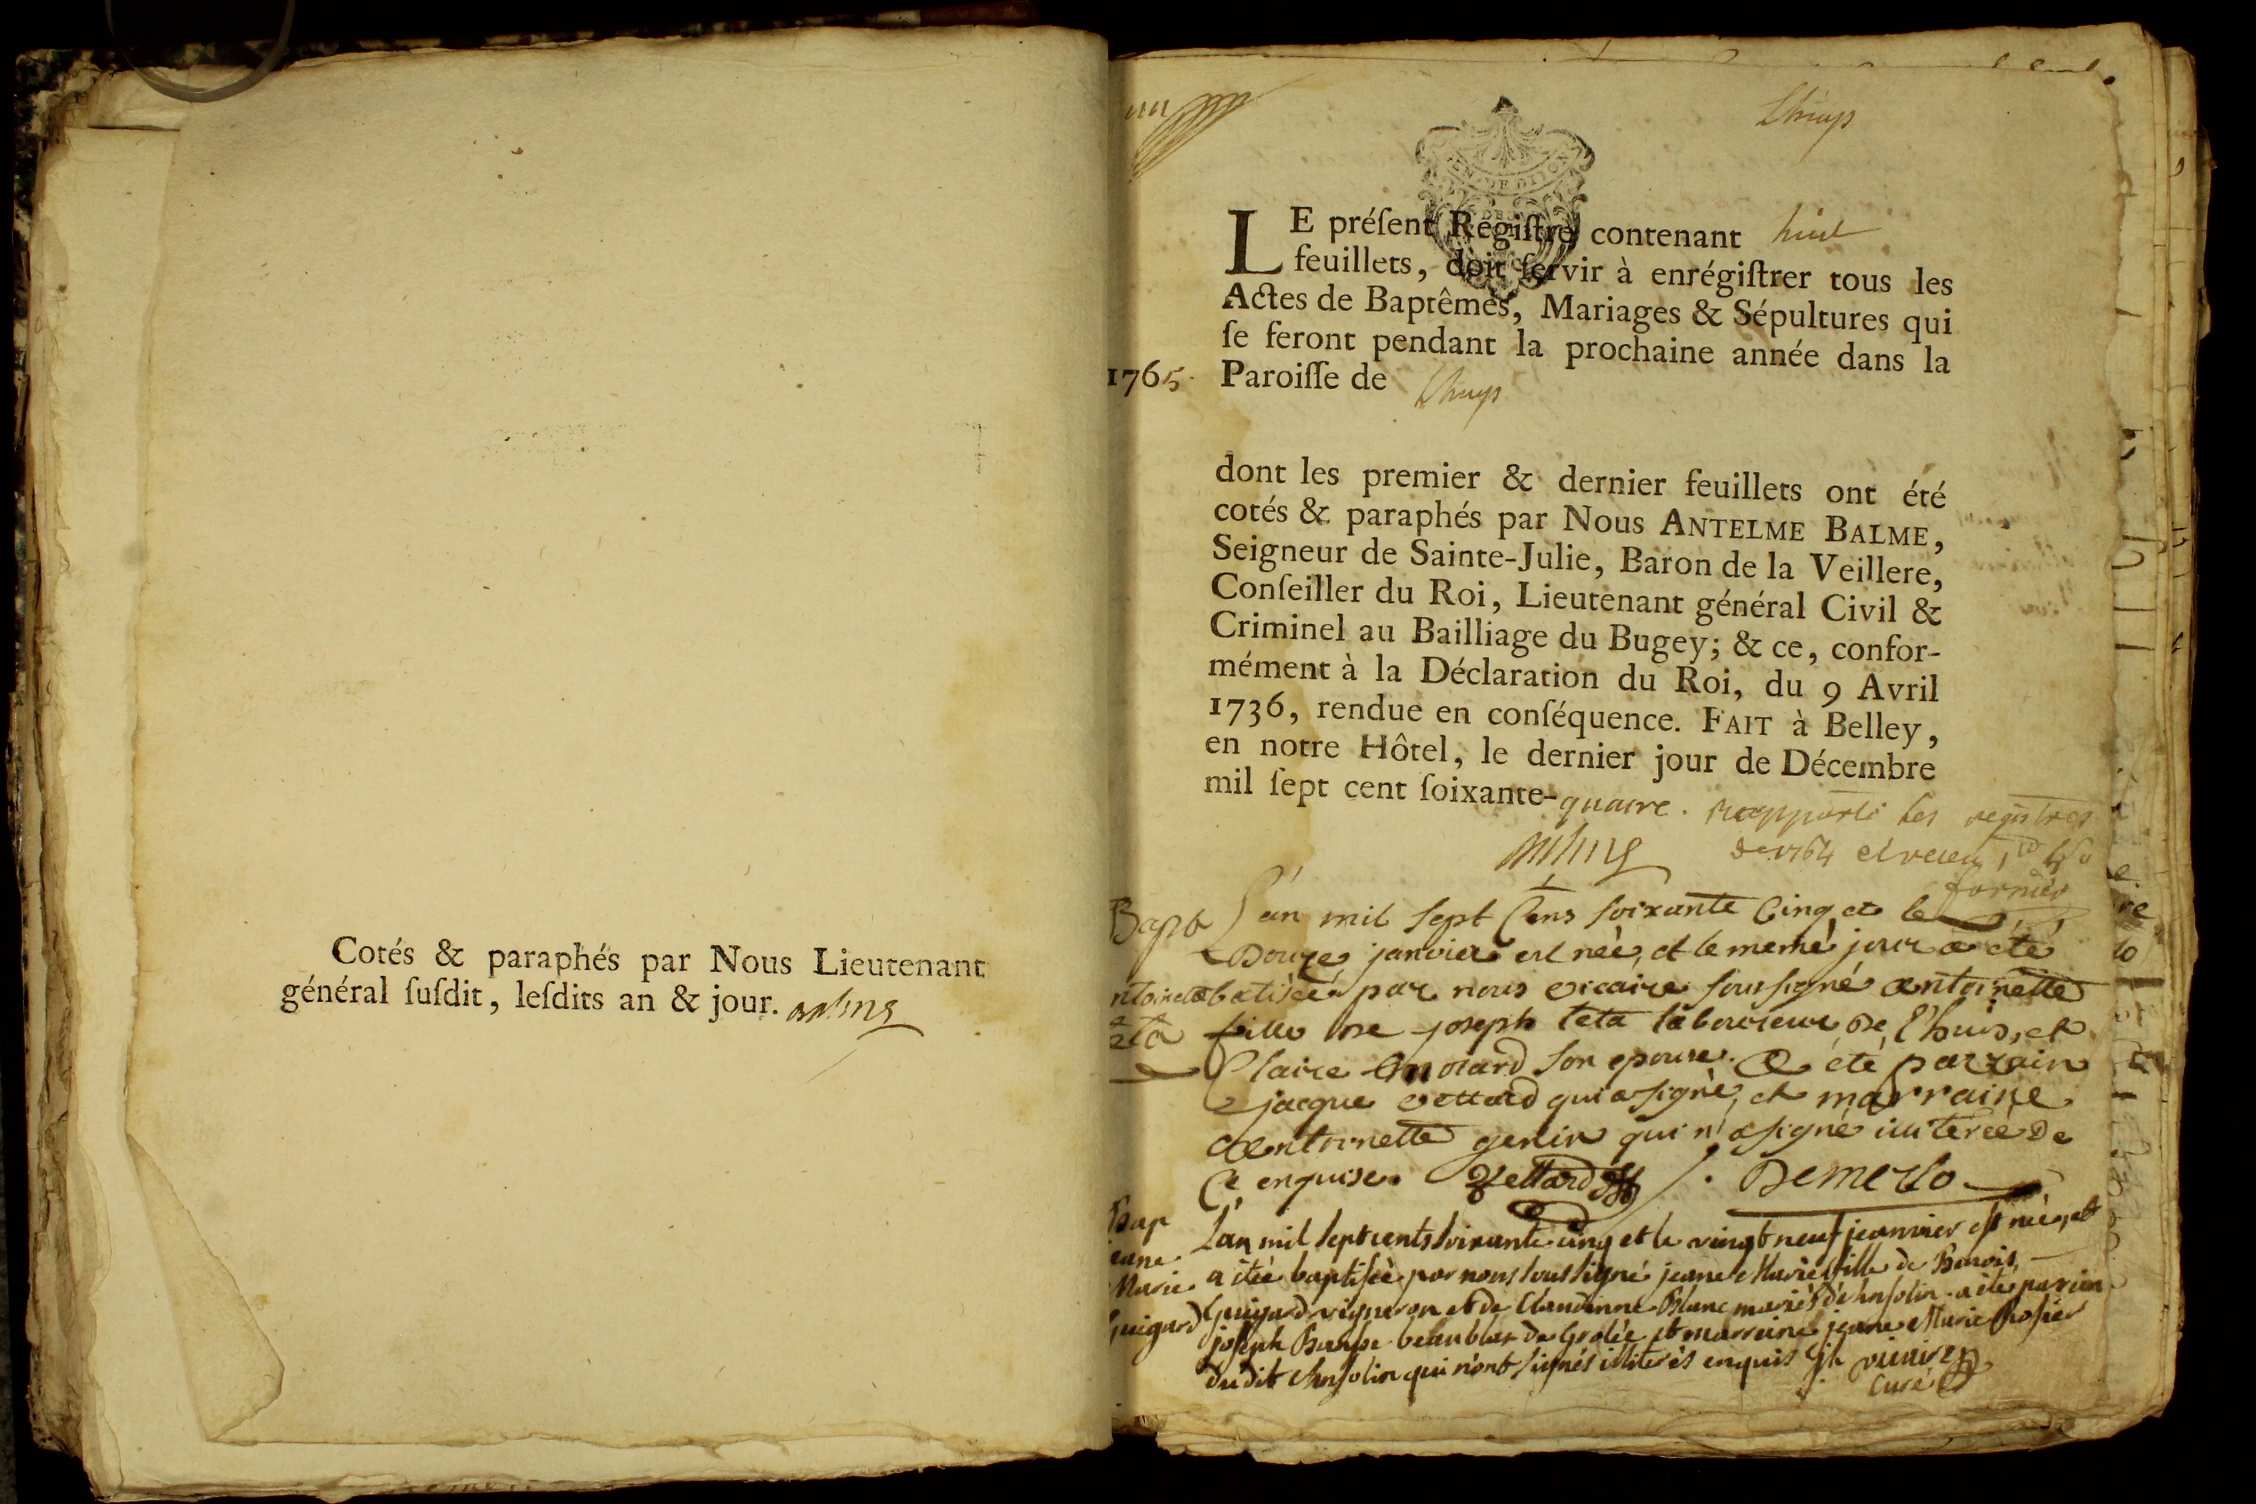 Cotés & paraphés par Nous Lieutenant
général ſuſdit, leſdits an & jour.
Lhuys
LE préſent Régiſtre contenant huit
feuillets, doit ſervir à enrégiſtrer tous les
Actes de Baptêmes, Mariages & Sépultures qui
ſe feront pendant la prochaine année dans la
1765. Paroiſſe de Lhuys
dont les premier & dernier feuillets ont été
cotés & paraphés par Nous ANTELME BALME,
Seigneur de Sainte-Julie, Baron de la Veillere,
Conſeiller du Roi, Lieutenant général Civil &
Criminel au Bailliage du Bugey; & ce, confor-
mément à la Déclaration du Roi, du 9 Avril
1736, rendue en conſéquence. FAIT à Belley,
en notre Hôtel, le dernier jour de Décembre
mil ſept cent ſoixante-quatre. rapporté les registres
de 1764 et receu
Bapt L'an mil sept Cens soixante Cinq et le
Douze janvier est née, et le meme jour a été
batisée par nous vicaire soussigné antoinette
fille de joseph teta laboureur de l'huis, et
Claire son epouse. a été parrain
jacque vettard qui a signé, et marraine
antoinette genin qui n'a signé de
Ce enquise. Vettard Demerlo
Bap L'an mil sept cents soixante cinq et le vingt neuf jeanvier est née, et
Marie a étée baptisée par nous soussigné jeane Marie fille de Benoit
Guigard Guigard vigneron et de Claudinne Blanc mariés d'Ansolin. a été parain
joseph de Grolée et marraine jeane Marie Rosier
dudit Ansolin qui n'ont signés illiterés enquis
Curé